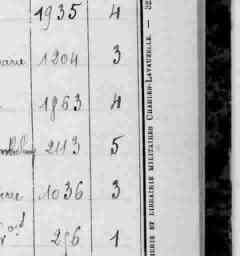 1935 4
1204 3
1863 4
2113 5
1036 3
256 1
MERIE ET LIBRAIRIE MILITAIRES CHARLES-LAVAUZELLE. —